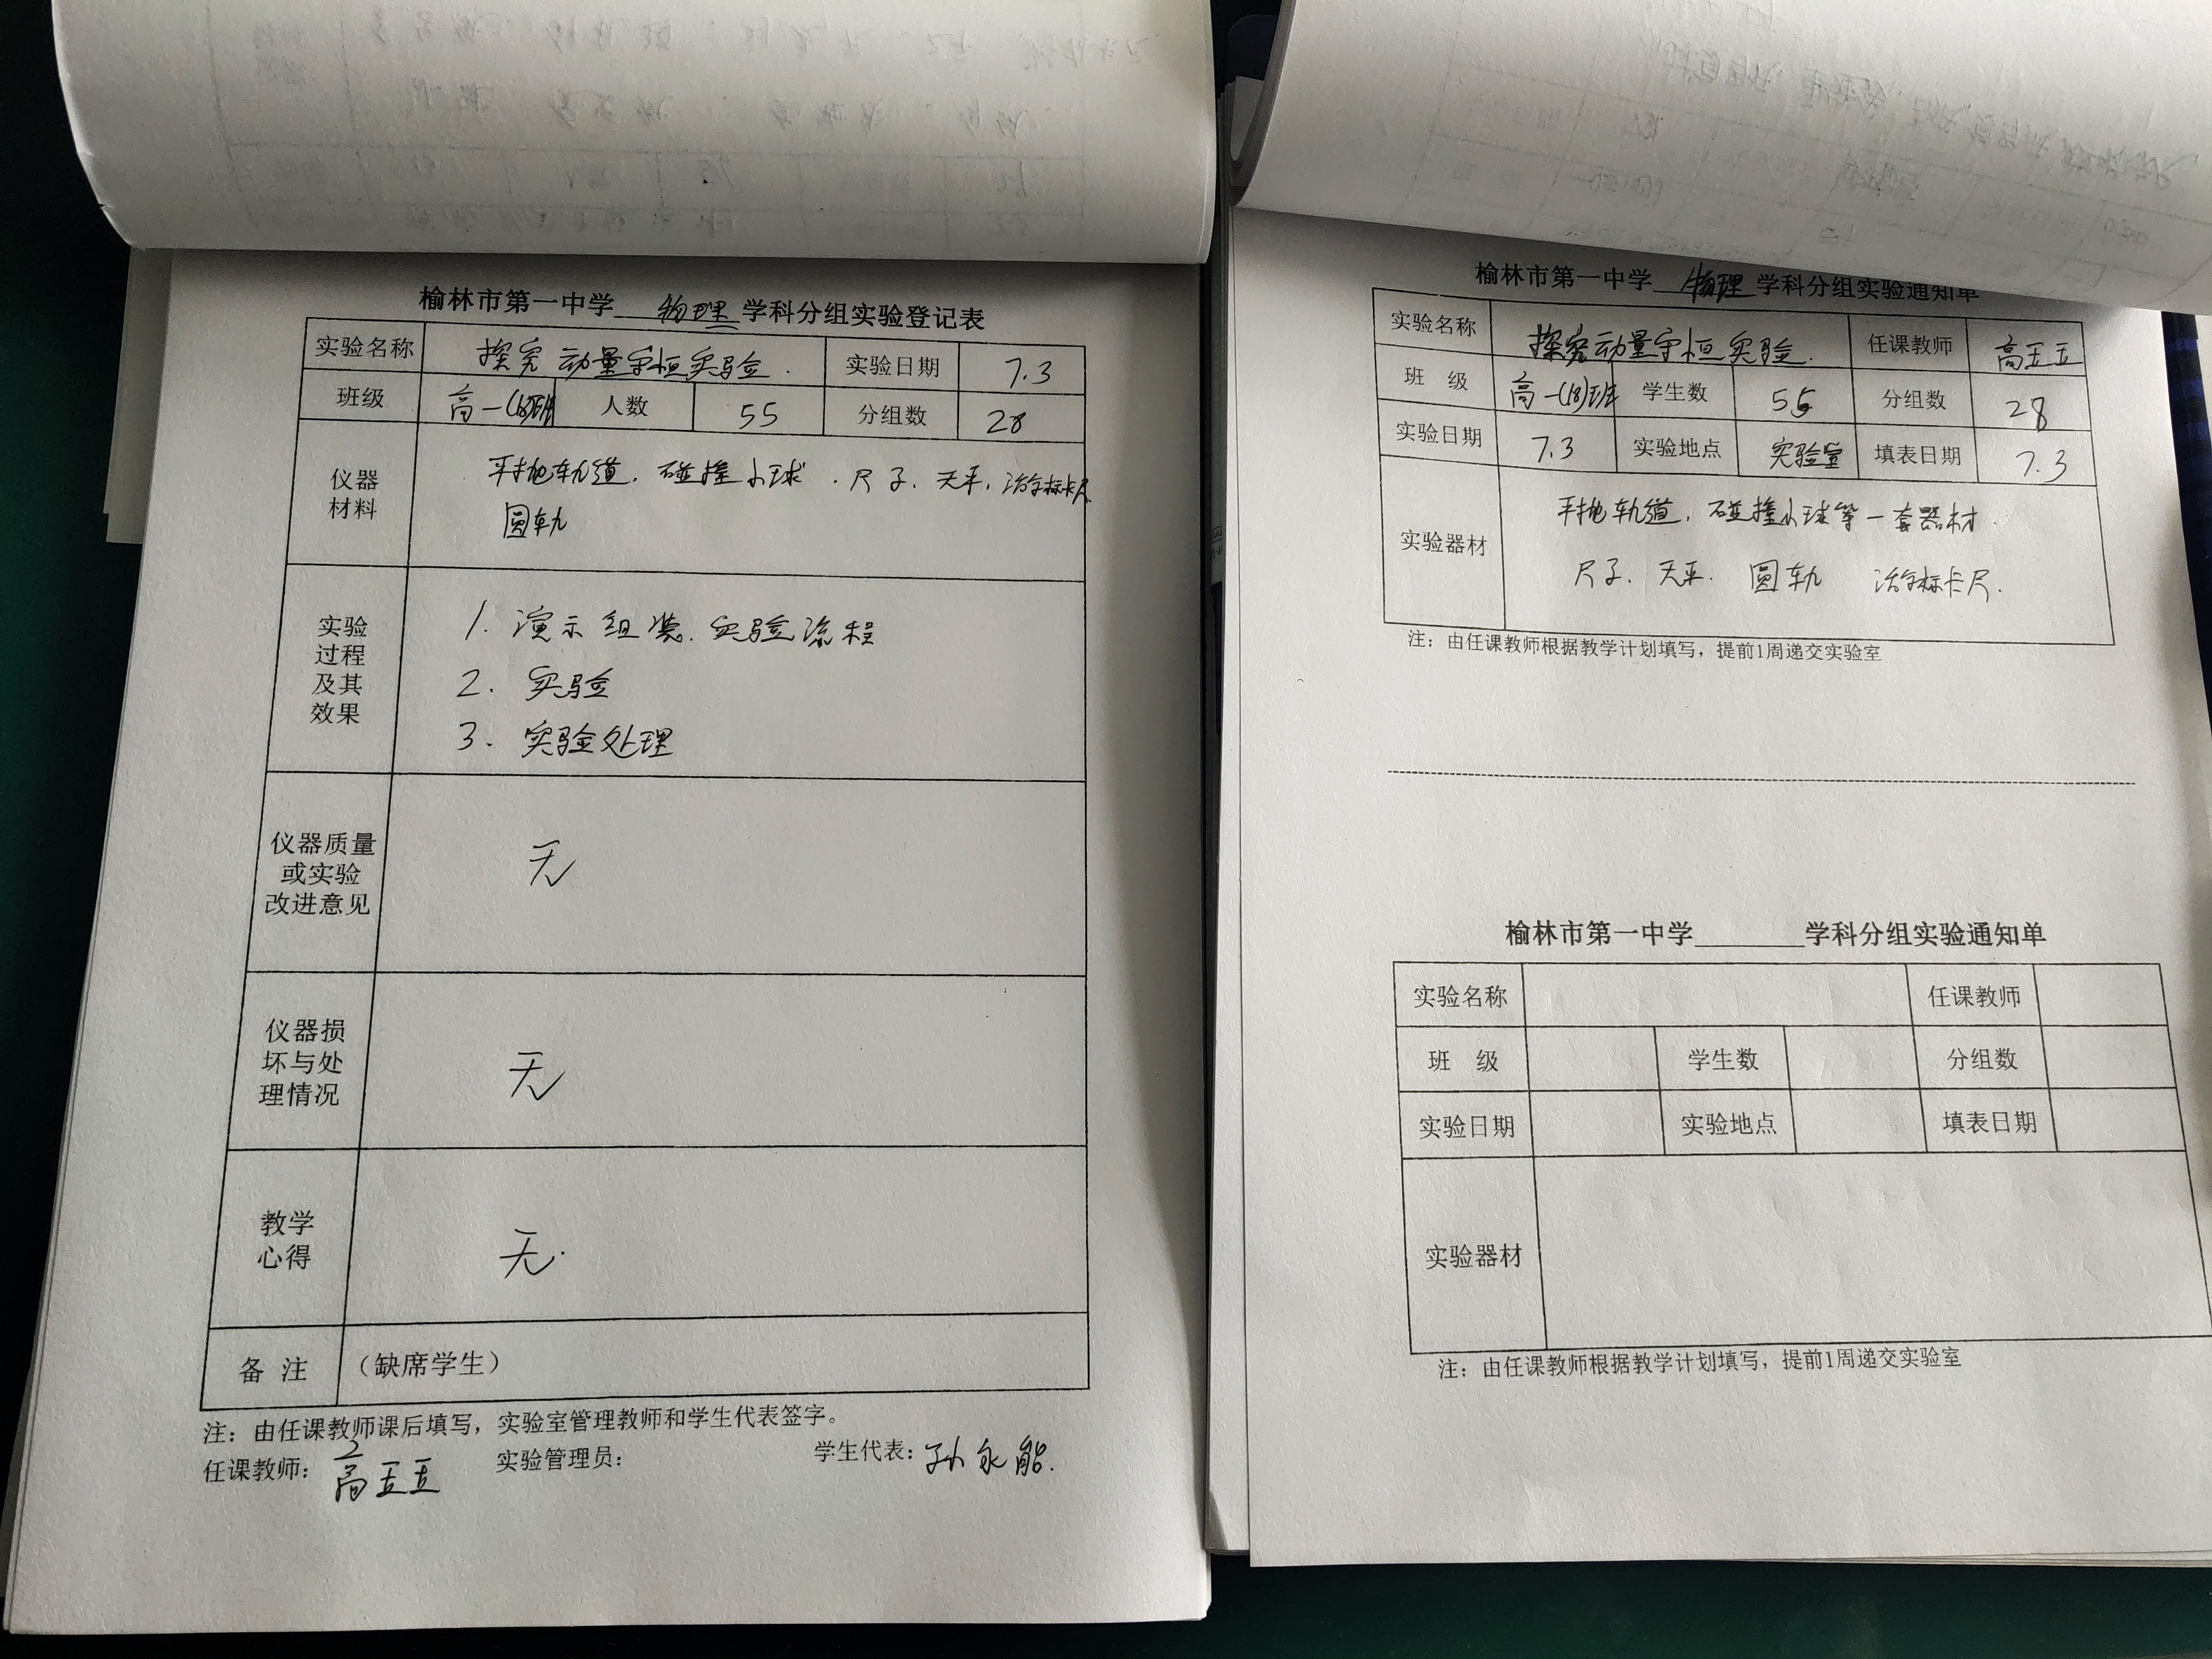 榆林市第一中学 物理 学科分组实验登记表
实验名称 探究动量守恒实验. 实验日期 7.3
班级 高一(18)班 人数 55 分组数 28
仪器材料 平抛轨道. 碰撞小球. 尺子. 天平. 游标卡尺
圆轨
实验过程及其效果
1. 演示组装. 实验流程
2. 实验
3. 实验处理
仪器质量或实验改进意见 无
仪器损坏与处理情况 无
教学心得 无.
备 注 （缺席学生）
注：由任课教师课后填写，实验室管理教师和学生代表签字。
任课教师：高五五 实验管理员： 学生代表：孙永能.
榆林市第一中学 物理 学科分组实验通知单
实验名称 探究动量守恒实验. 任课教师 高五五
班 级 高一(18)班 学生数 55 分组数 28
实验日期 7.3 实验地点 实验室 填表日期 7.3
实验器材 平抛轨道. 碰撞小球等一套器材.
尺子. 天平. 圆轨 游标卡尺.
注：由任课教师根据教学计划填写，提前1周递交实验室
榆林市第一中学________学科分组实验通知单
实验名称 任课教师
班 级 学生数 分组数
实验日期 实验地点 填表日期
实验器材
注：由任课教师根据教学计划填写，提前1周递交实验室